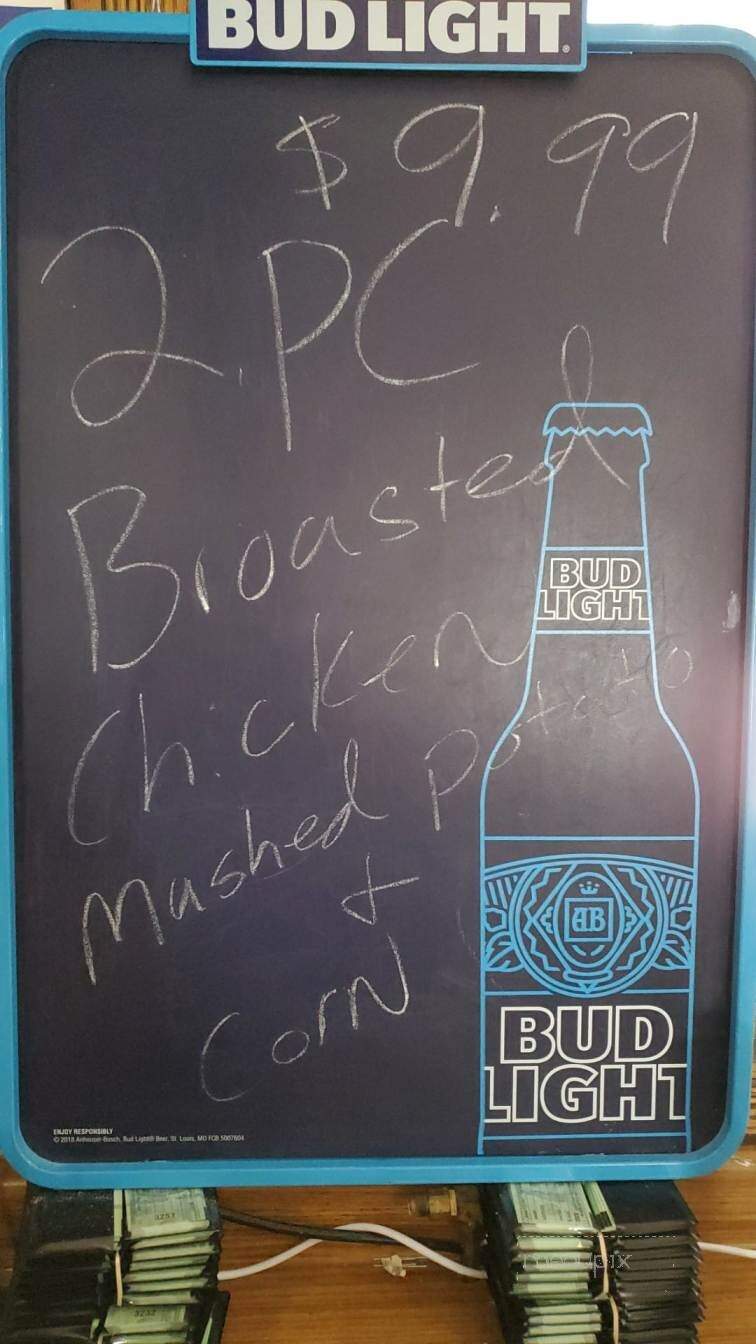 BUD LIGHT®
$9.99
2 PC
Broasted
Chicken
Mashed Potato
+
Corn
BUD
LIGHT
AB
BUD
LIGHT
ENJOY RESPONSIBLY
© 2018 Anheuser-Busch, Bud Light® Beer, St. Louis, MO
3257
3232